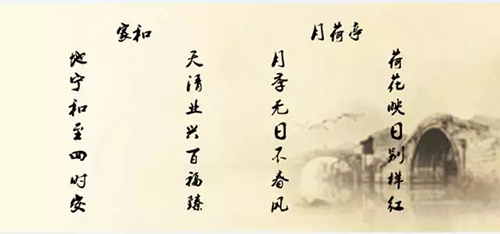 月荷亭
荷花映日别样红
月季无日不春风
家和
天清业兴百福臻
地宁和至四时安